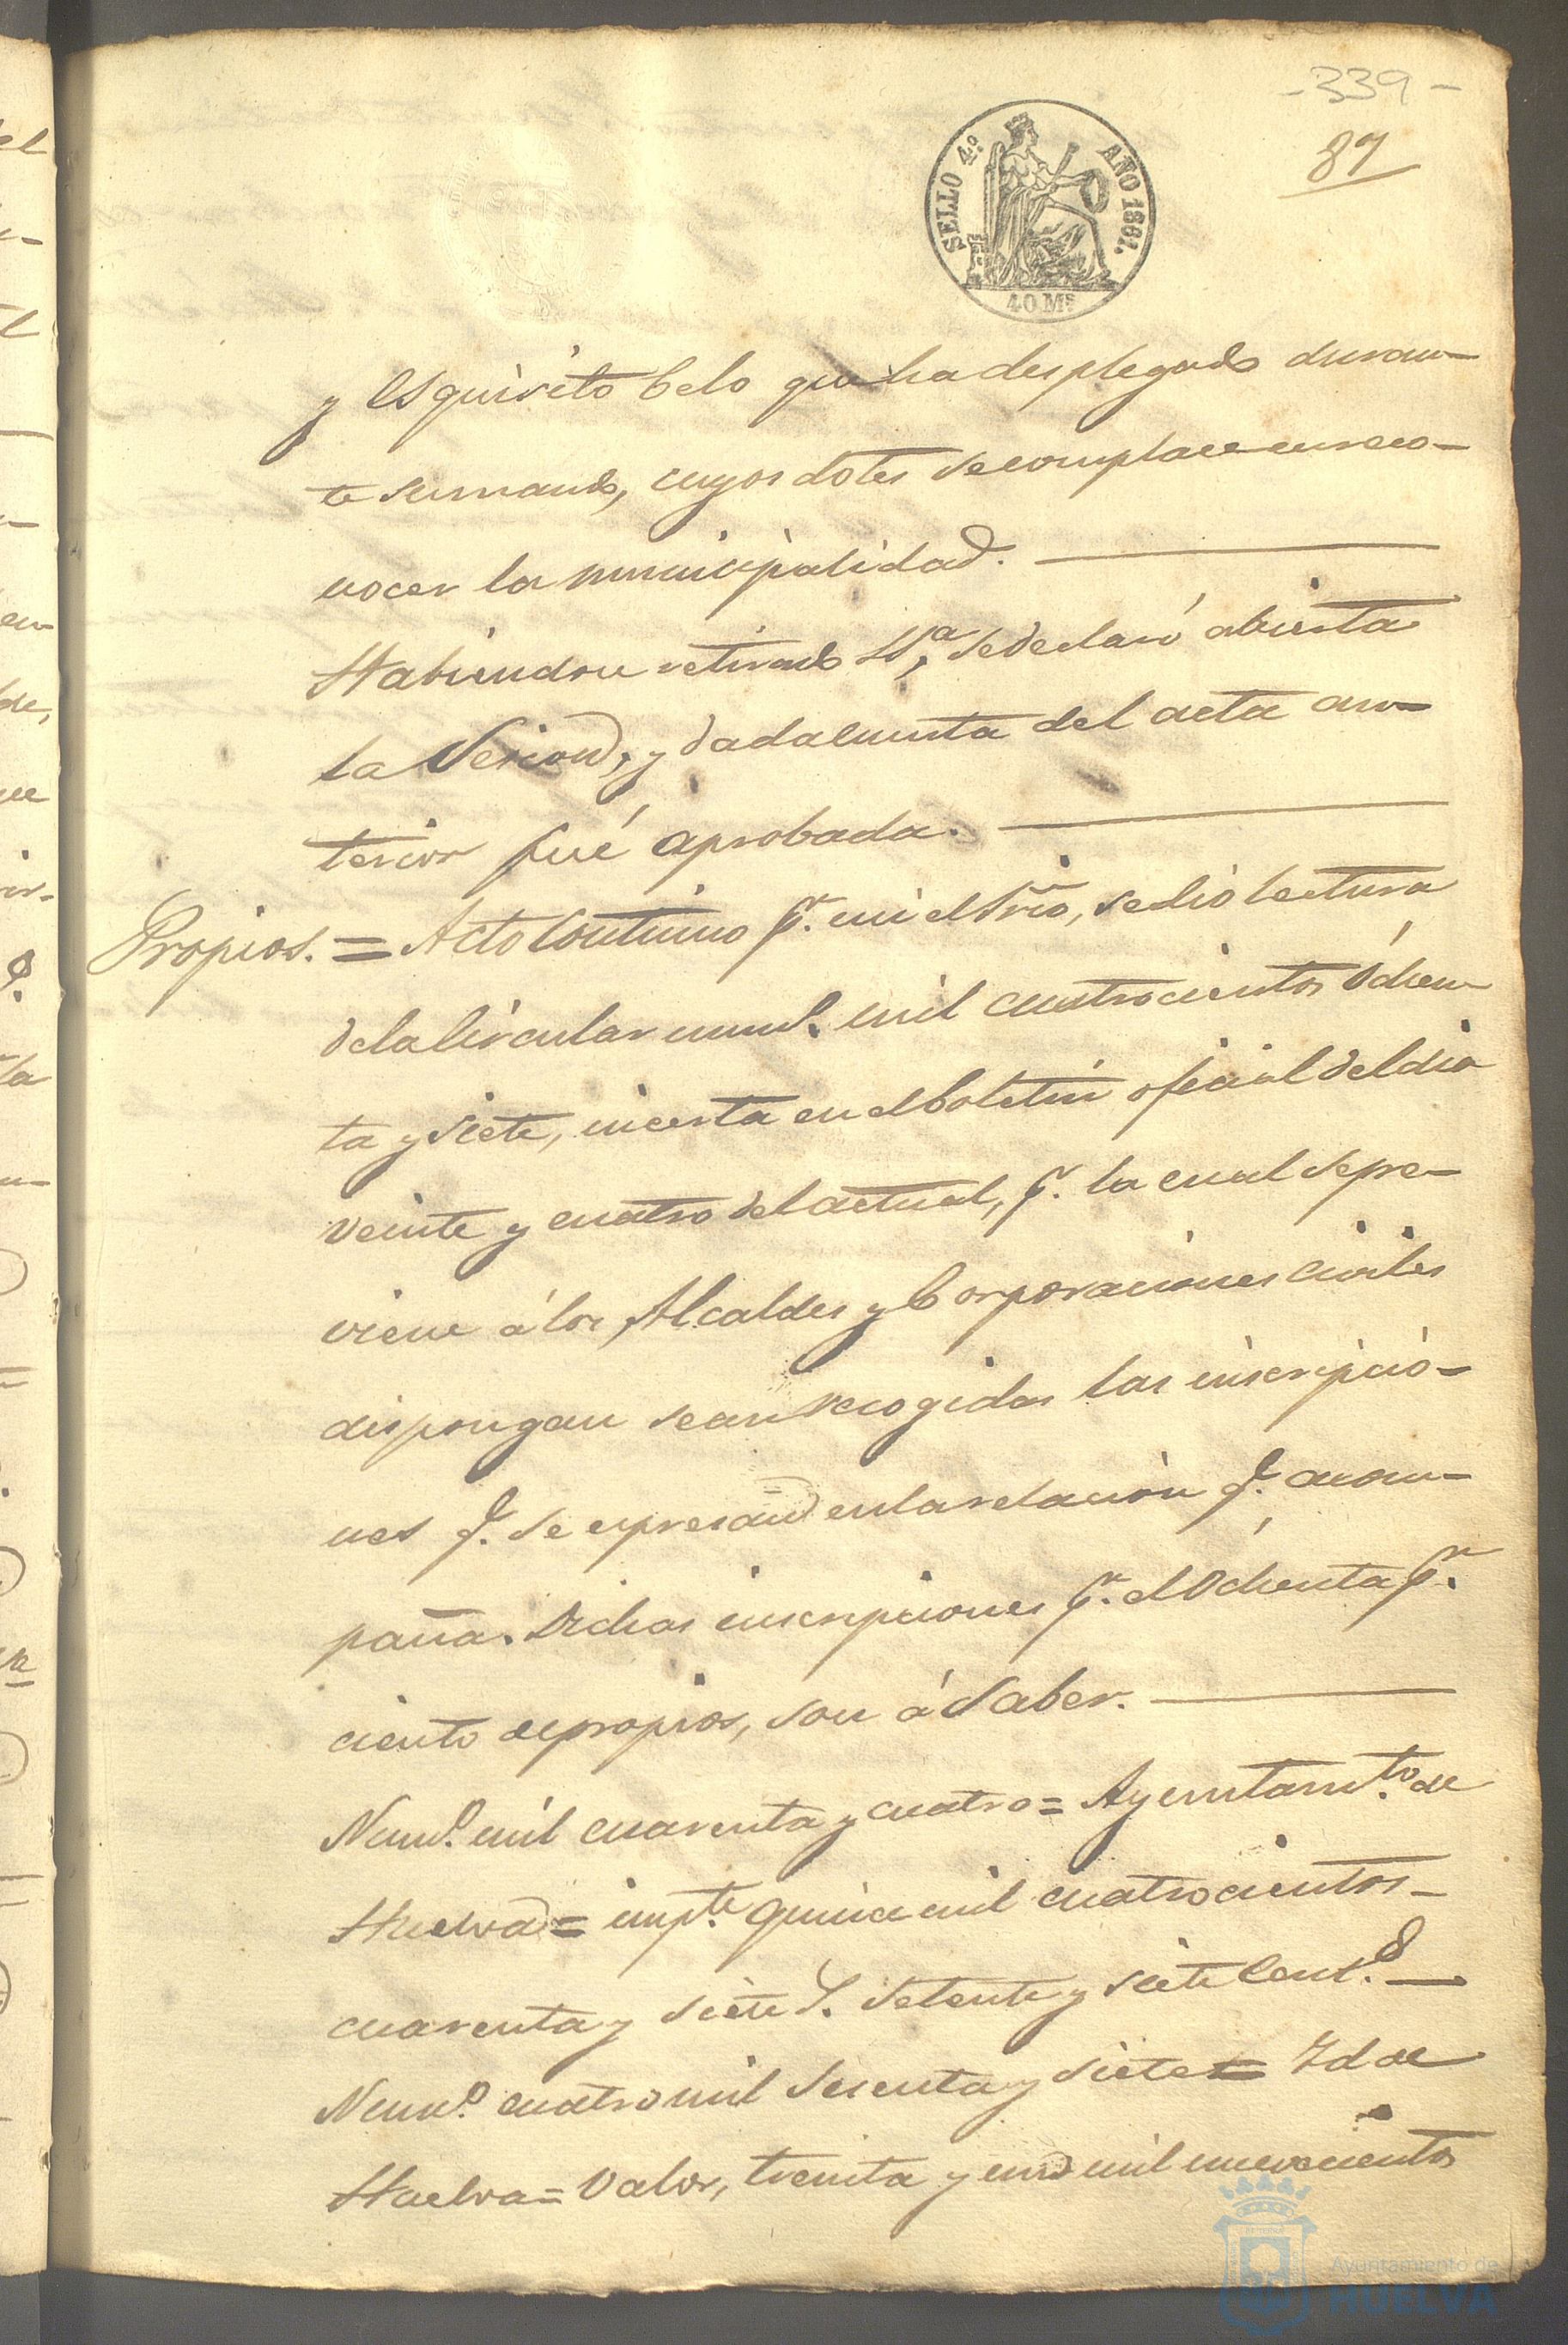 -339-
87
SELLO 4º. AÑO 1861.
40 Ms
y esquisito Celo que ha desplegado duran-
te su mando, cuyos dotes se complace en reco-
nocer la municipalidad. —
Habiendose retirado SSa, se declaró abierta
la Sesion, y dada Cuenta del acta an-
terior fué aprobada. —
Propios. = Acto Continuo pr. mi el Srio, se dió lectura
de la Circular numo. mil cuatrocientos Óchen-
ta y siete, incerta en el Boletin oficial del dia
veinte y cuatro del actual, pr. la cual se pre-
viene á los Alcaldes y Corporaciones civiles
dispongan sean recogidas las inscripcio-
nes q. se expresan en la relacion q. acom-
paña. Dichas inscripciones pr. el Ochenta pr.
ciento de propios, son á Saber. —
Numo. mil cuarenta y cuatro = Ayuntamto. de
Huelva = impte. quince mil cuatrocientos-
cuarenta y siete rs. setenta y siete Cents. —
Numo. cuatro mil sesenta y siete = Id de
Huelva = Valor, treinta y un mil novecientos
Ayuntamiento de
HUELVA